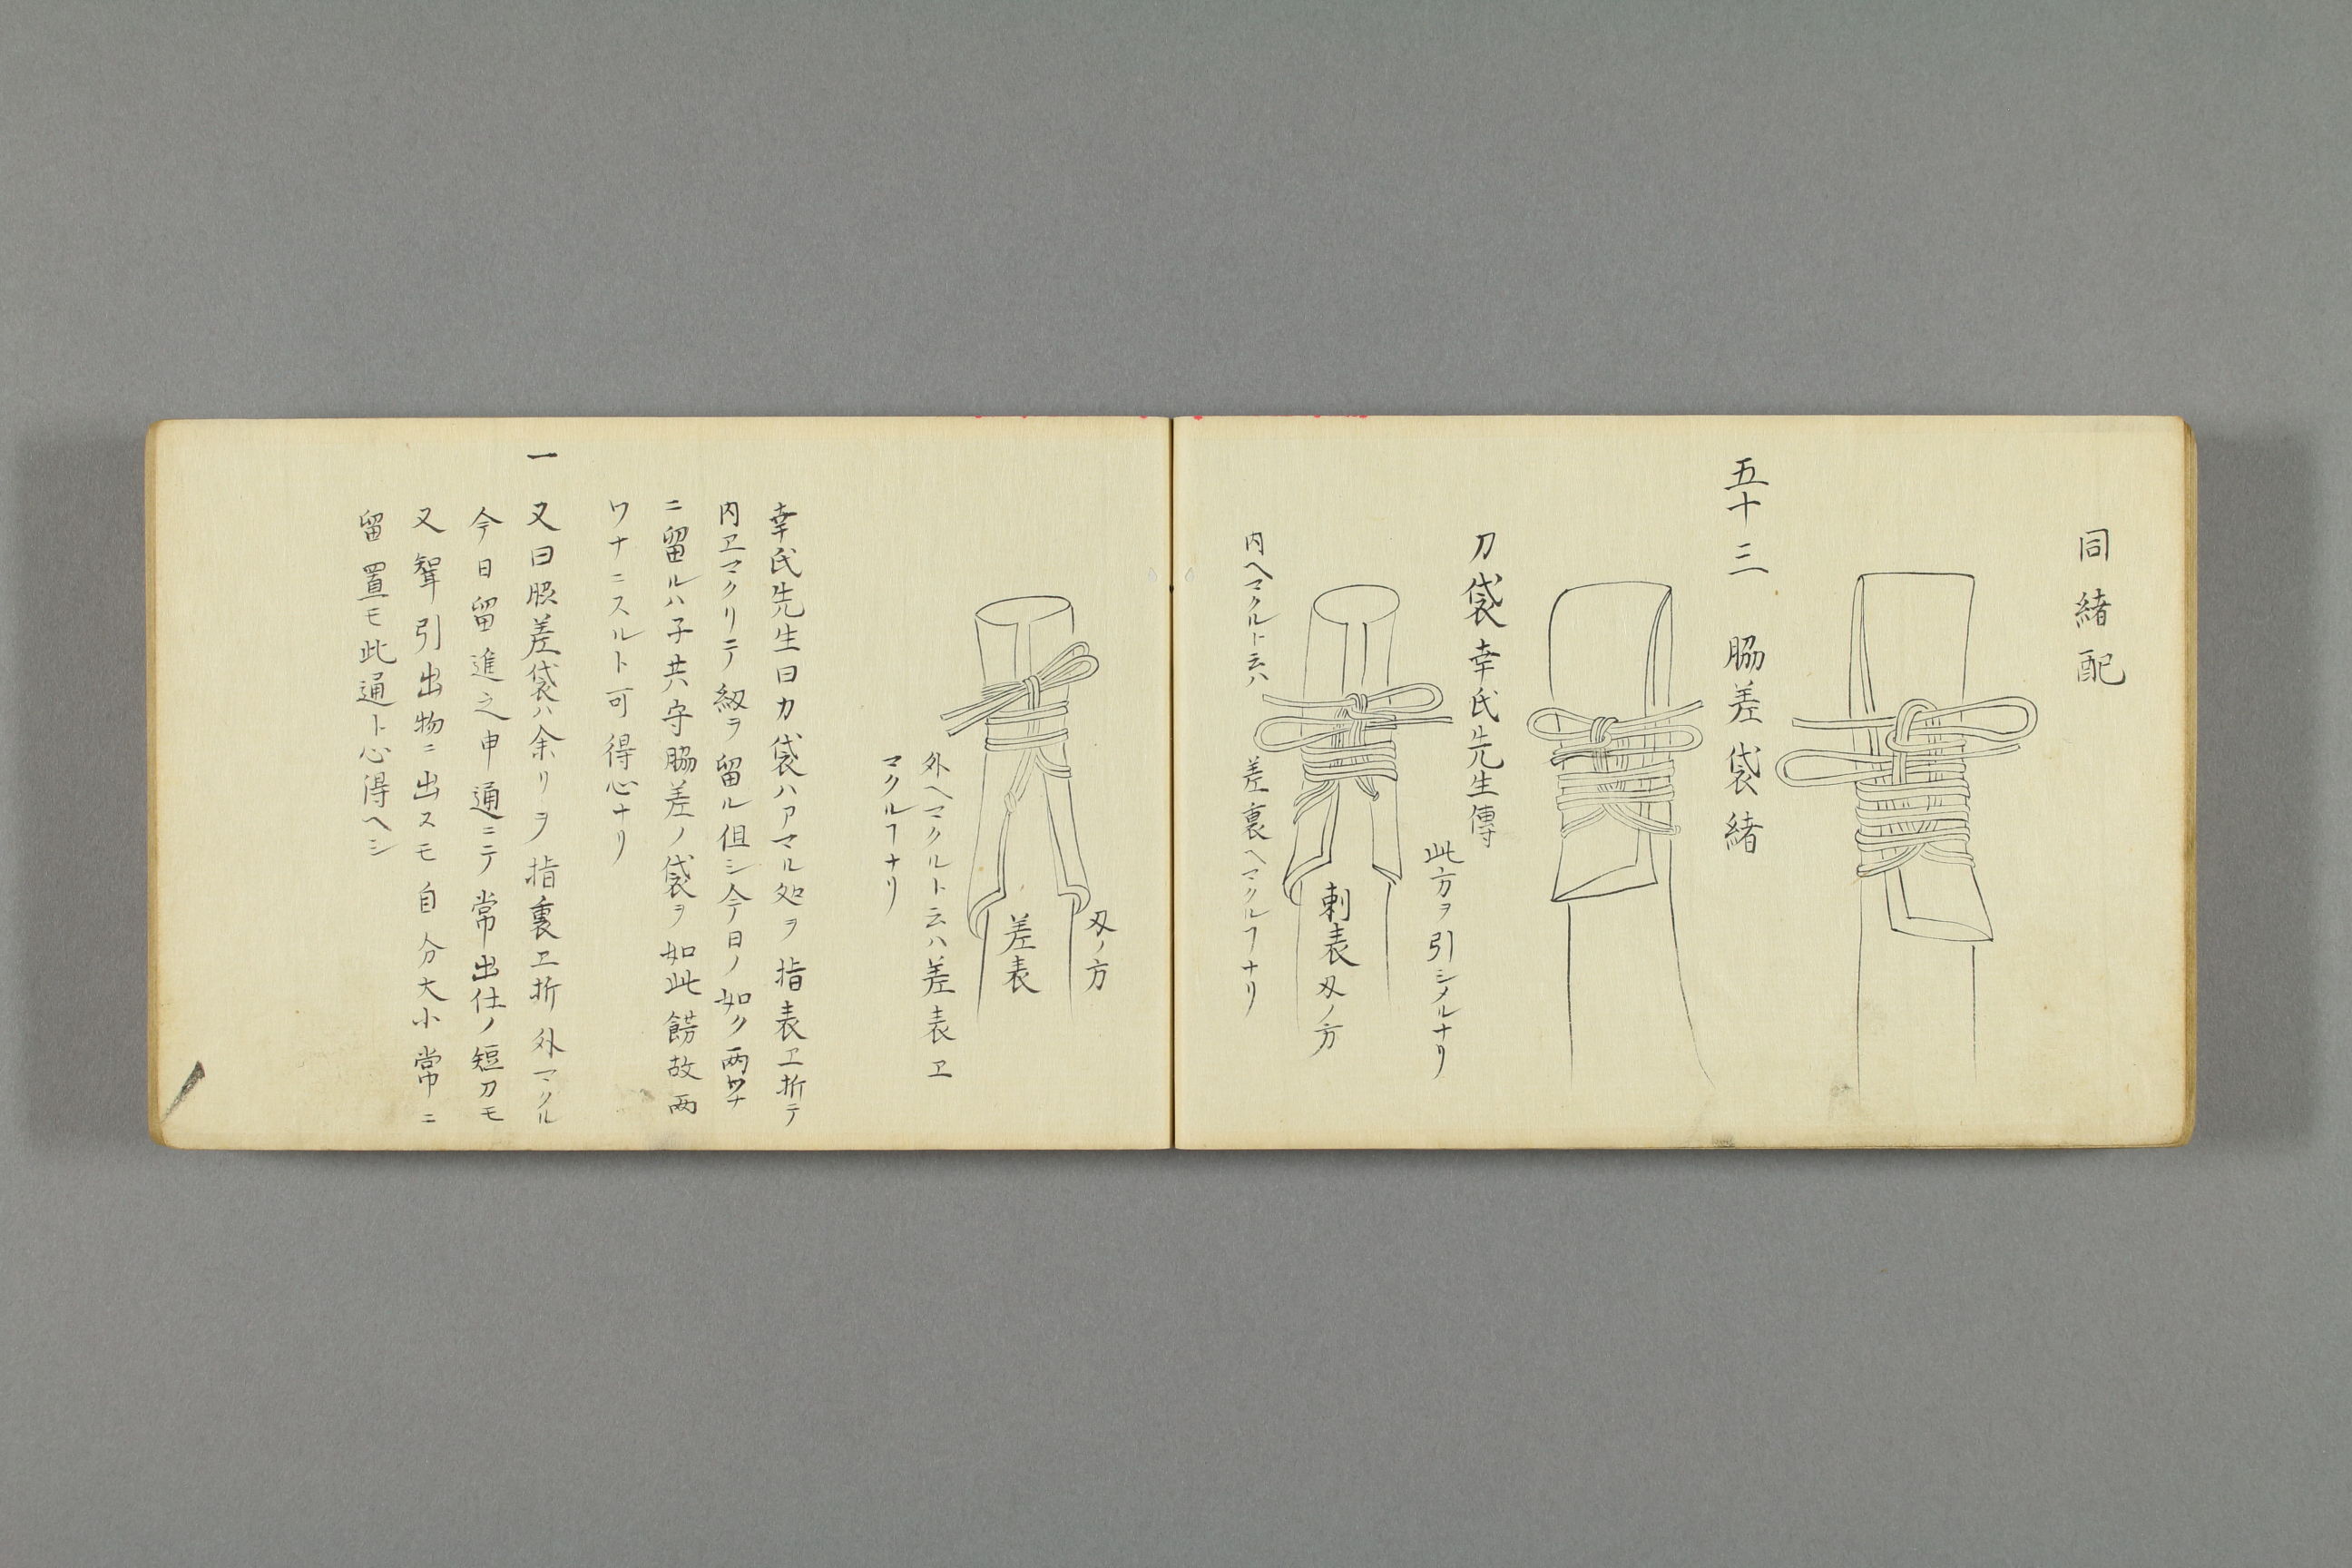 同緒配
五十三 脇差袋緒
刀袋幸氏先生傳
此方ヲ引シメルナリ
刺表刄ノ方
内ヘマクルト云ハ 差裏ヘマクルヿナリ
刄ノ方
差表
外ヘマクルト云ハ差表ヱ
マクルヿナリ
幸氏先生曰刀袋ハアマル処ヲ指表ヱ折テ
内ヱマクリテ紐ヲ留ル但シ今日ノ如ク両ワナ
ニ留ルハ子共守脇差ノ袋ヲ如此餝故両
ワナニスルト可得心ナリ
一 又曰脇差袋ハ余リヲ指裏ヱ折外マクル
今日留進之申通ニテ常出仕ノ短刀モ
又聟引出物ニ出スモ自分大小常ニ
留置モ此通ト心得ヘシ